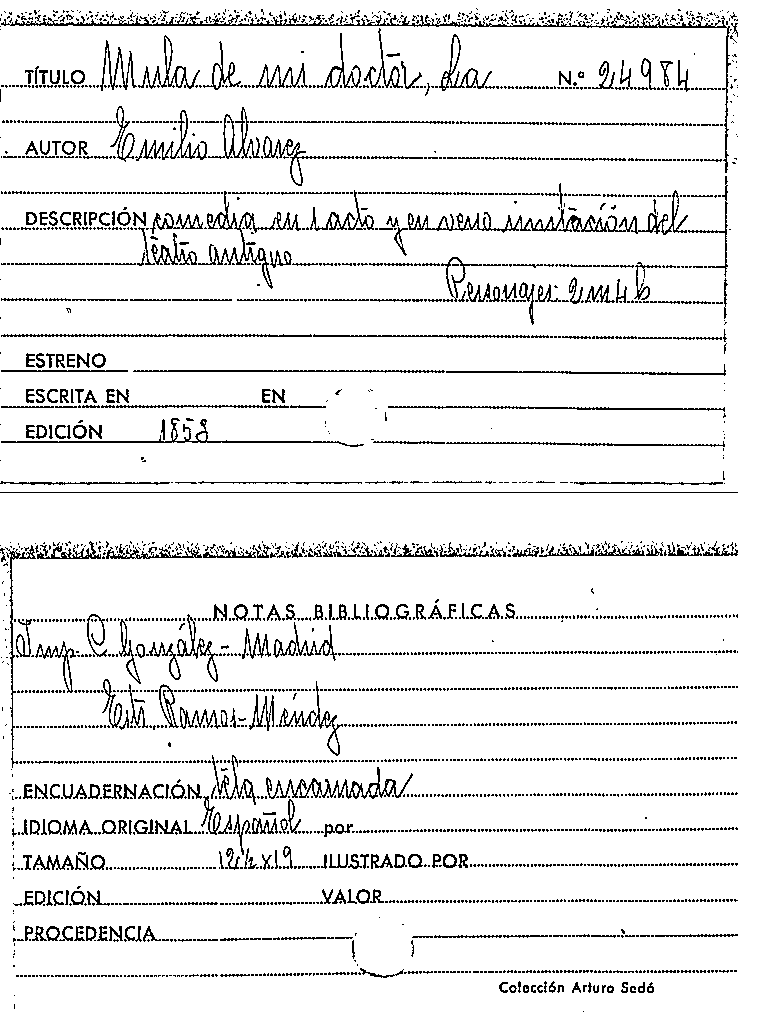 TÍTULO Mula de mi doctor, La N.º 24984
AUTOR Emilio Alvarez
DESCRIPCIÓN comedia en 1 acto y en verso imitación del
teatro antiguo
Personajes: 2 m 4 h
ESTRENO
ESCRITA EN EN
EDICIÓN 1858
NOTAS BIBLIOGRÁFICAS
Imp. C. González - Madrid
Ests Ramos-Méndez
ENCUADERNACIÓN tela encarnada
IDIOMA ORIGINAL Español por
TAMAÑO 12½ x 19 ILUSTRADO POR
EDICIÓN VALOR
PROCEDENCIA
Colección Arturo Sedó